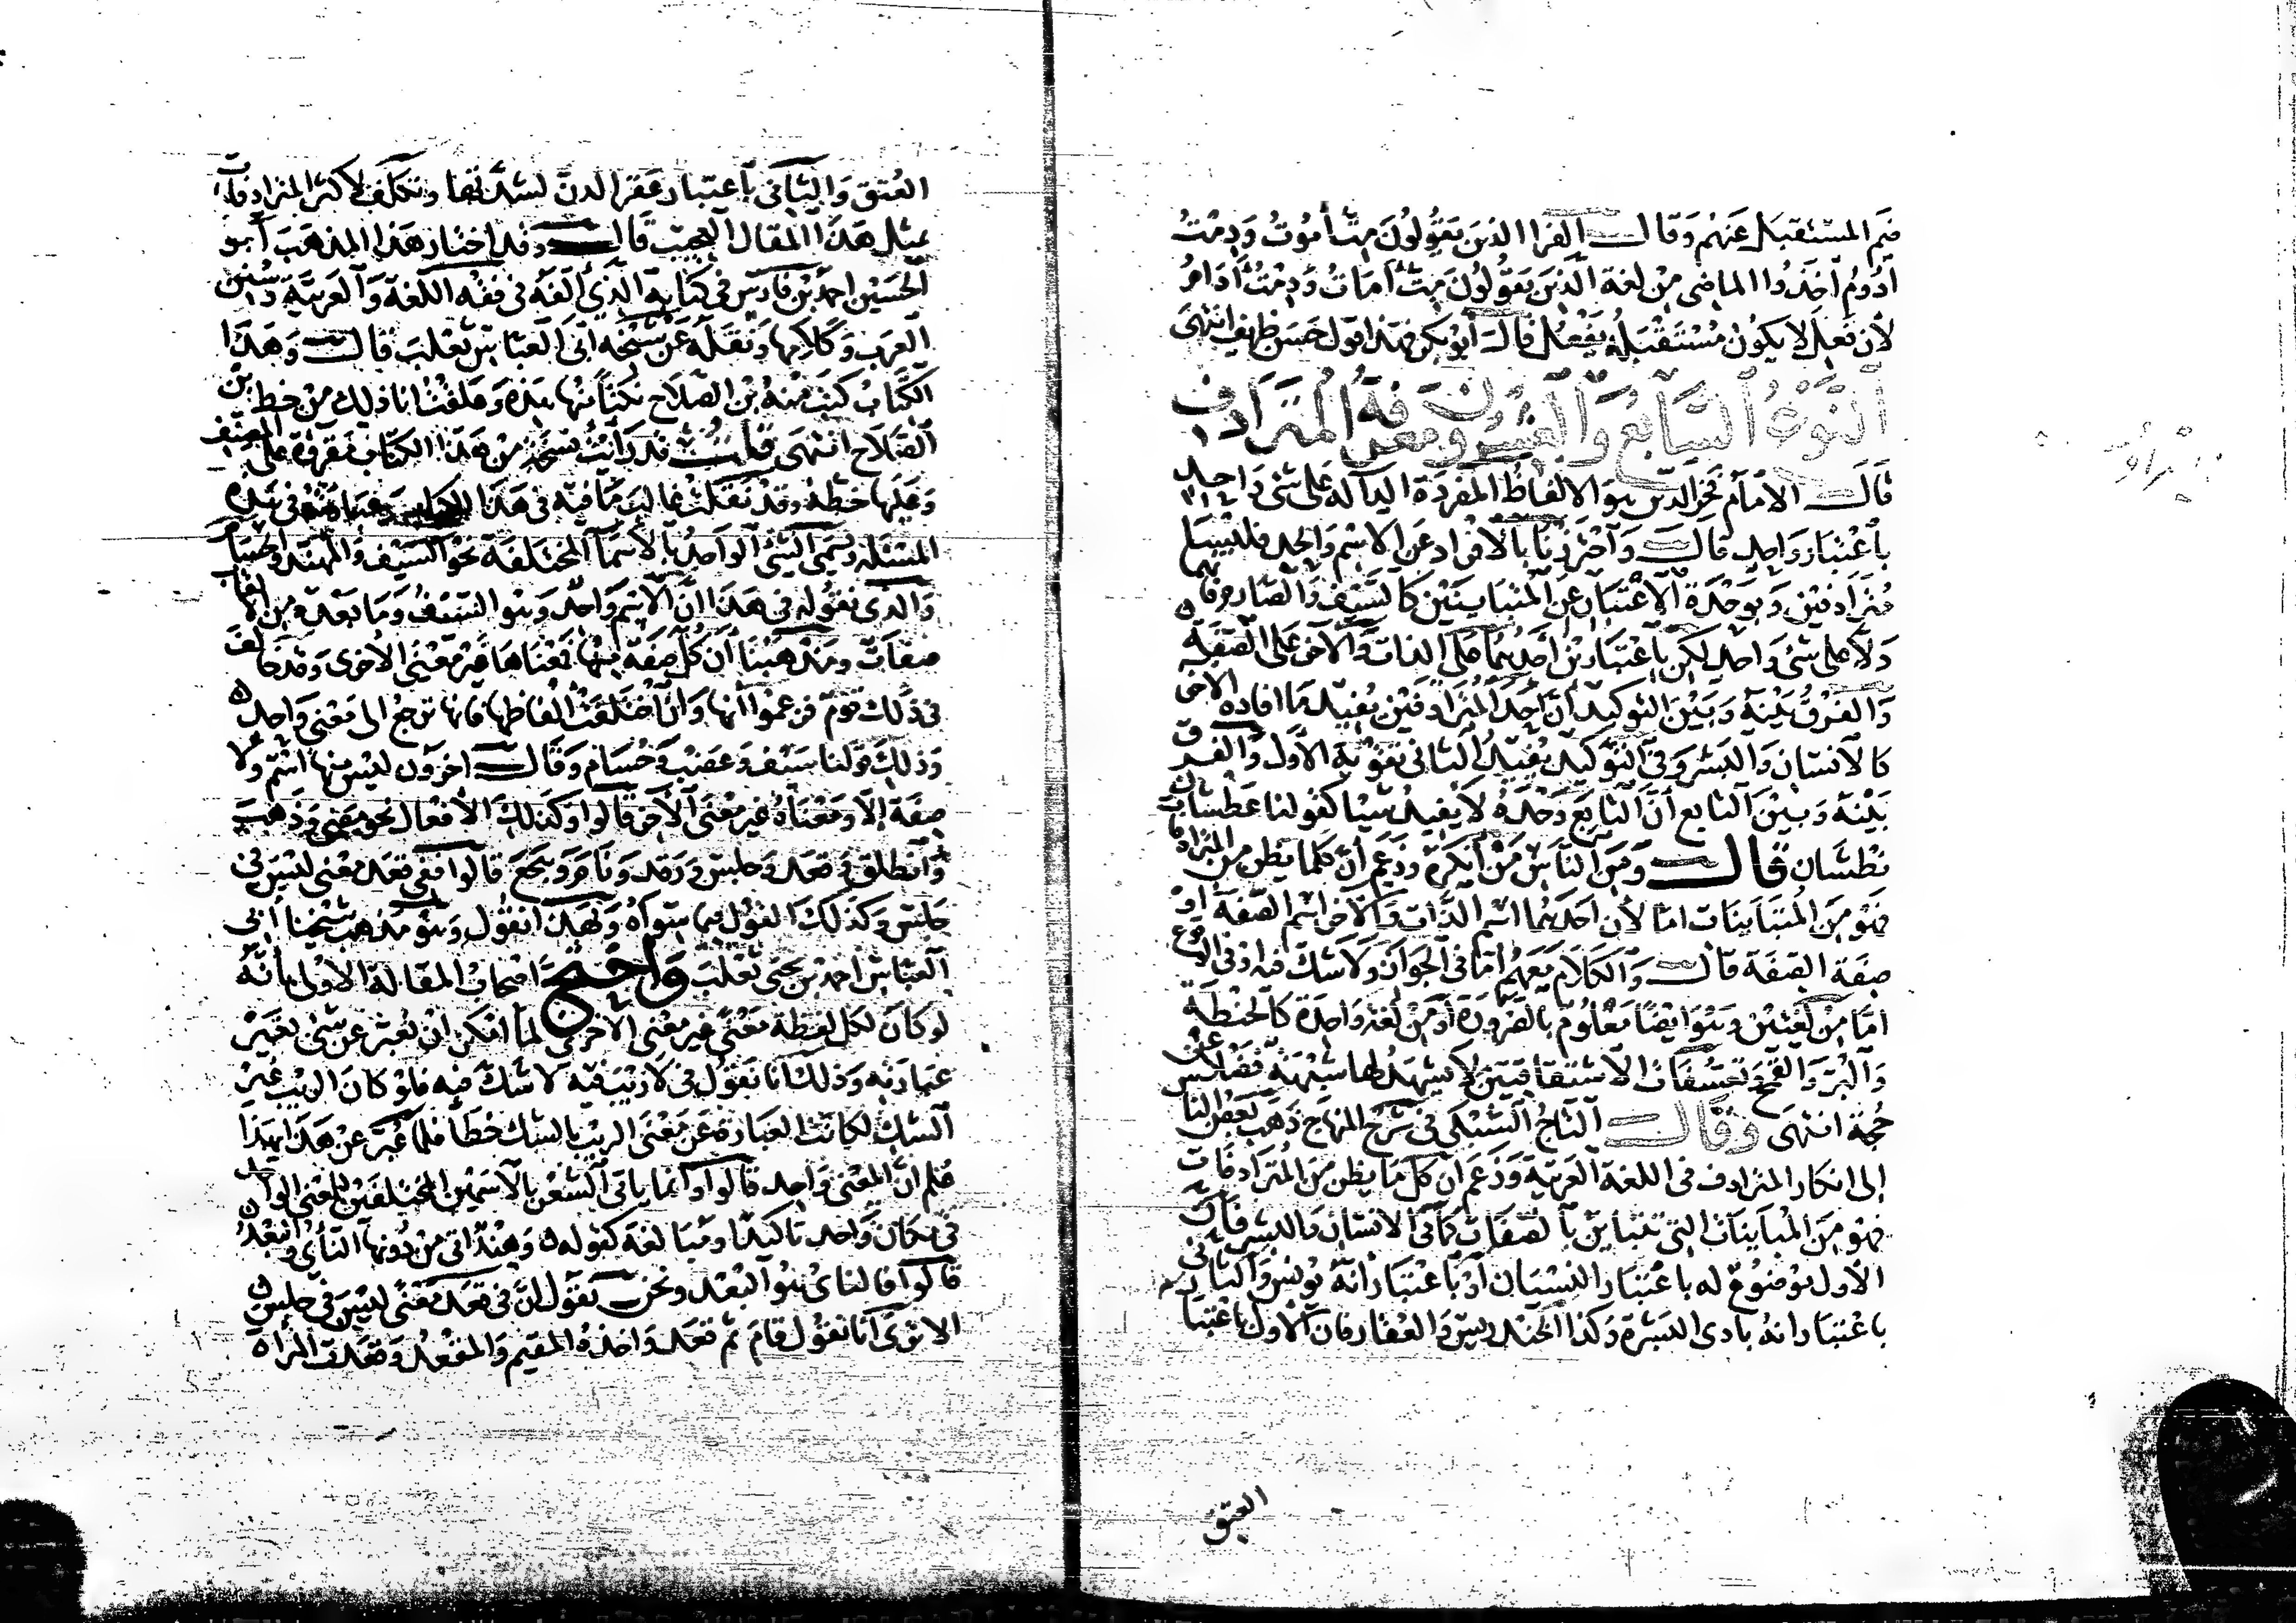 فيم المستقبل عنهم وقال الفرا الذين يقولون مِتّ أموت ودِمت
أدوم أخذوا الماضى من لغة الذين يقولون مِتّ أمات ودِمت أدام
لأن فعل لا يكون مستقبله يفعُل قال أبو بكر فهذا قول حسن ظريف انتهى
النوع السابع والعشرون معرفة المترادف
قال الامام فخر الدين هو الالفاظ المفردة الدالة على شئ واحد
باعتبار واحد قال واحترزنا بالافراد عن الاسم والحد فليسا
مترادفين وبوحدة الاعتبار عن المتباينين كالسيف والصارم فانهما
دلا على شئ واحد لكن باعتبارين أحدهما على الذات والآخر على الصفة
والفرق بينه وبين التوكيد أن أحد المترادفين يفيد ما افاده الاخر
كالانسان والبشر وفى التوكيد يفيد الثانى تقوية الاول والفرق
بينه وبين التابع أن التابع وحده لا يفيد شيا كقولنا عطشان
نطشان قال ومن الناس من أنكره وزعم أن كلما يظن من المترادفات
فهو من المتباينات اما لأن احدهما اسم الذات والاخر اسم الصفة أو
صفة الصفة قال والكلام معهم اما فى الجواز ولا شك فيه او فى الوقوع
اما من لغتين وهو ايضا معلوم بالضرورة أو من لغة واحدة كالحنطة
والبر والقمح وتعسفات الاشتقاقيين لا يشهد لها شبهة فضلا عن
حجة انتهى وقال التاج السبكى فى شرح المنهاج ذهب بعض الناس
إلى انكار المترادف فى اللغة العربية وزعم أن كل ما يظن من المترادفات
فهو من المتباينات التى تتباين بالصفات كما فى الانسان والبشر فان
الاول موضوع له باعتبار النسيان أو باعتبار أنه يونس والثانى
باعتبار انه بادى البشرة وكذا الخندريس والعقار فان الاول باعتبار
العتق
العتق والثانى باعتبار عقر الدن لشدتها وتكلف لأكثر المترادفات
بمثل هذا المقال العجيب قال وقد اختار هذا المذهب أبو
الحسين احمد بن فارس فى كتابه الذى ألفه فى فقه اللغة والعربية وسنن
العرب وكلامها ونقله عن شيخه أبى العباس ثعلب قال وهذا
الكتاب كتب منه بن الصلاح نكتا منها هذه وعلقت انا ذلك من خط بن
الصلاح انتهى قلت قد رأيت نسخة من هذا الكتاب مقروءة على المصنف
وعليها خطه وقد نقلت غالب ما فيه فى هذا الكتاب وعبارته فى هذه
المسئلة ويسمى الشئ الواحد بالأسماء المختلفة نحو السيف والمهند والحسام
والذى نقوله فى هذا ان الاسم واحد وهو السيف وما بعده من الالقاب
صفات ومذهبنا أن كل صفة منها فمعناها غير معنى الاخرى وقد خالف
فى ذلك قوم فزعموا أنها وان اختلفت الفاظها فانها ترجع الى معنى واحد
وذلك قولنا سيف وعضب وحسام وقال اخرون ليس منها اسم ولا
صفة إلا ومعناه غير معنى الأخر قالوا وكذلك الأفعال نحو مضى وذهب
وانطلق وقعد وجلس ورقد ونام وهجع قالوا ففى قعد معنى ليس فى
جلس وكذلك القول فيما سواه وبهذا نقول وهو مذهب شيخنا أبى
العباس احمد بن يحيى ثعلب واحتج اصحاب المقالة الاولى بأنه
لو كان لكل لفظة معنى غير معنى الاخرى لما أمكن ان نعبر عن شئ بغير
عبارته وذلك انا نقول فى لا ريب فيه لا شك فيه فلو كان الريب غير
الشك لكانت العبارة عن معنى الريب بالشك خطأ فلما عبر عن هذا بهذا
علم ان المعنى واحد قالوا وانما ياتى الشعر بالاسمين المختلفين للمعنى الواحد
فى مكان واحد تاكيدا ومبالغة كقوله وهند اتى من دونها النأى والبعد
قالوا فالناى هو البعد ونحن نقول ان فى قعد معنى ليس فى جلس
الا ترى أنا نقول قام ثم قعد واخذه المقيم والمقعد وقعدت المرأة